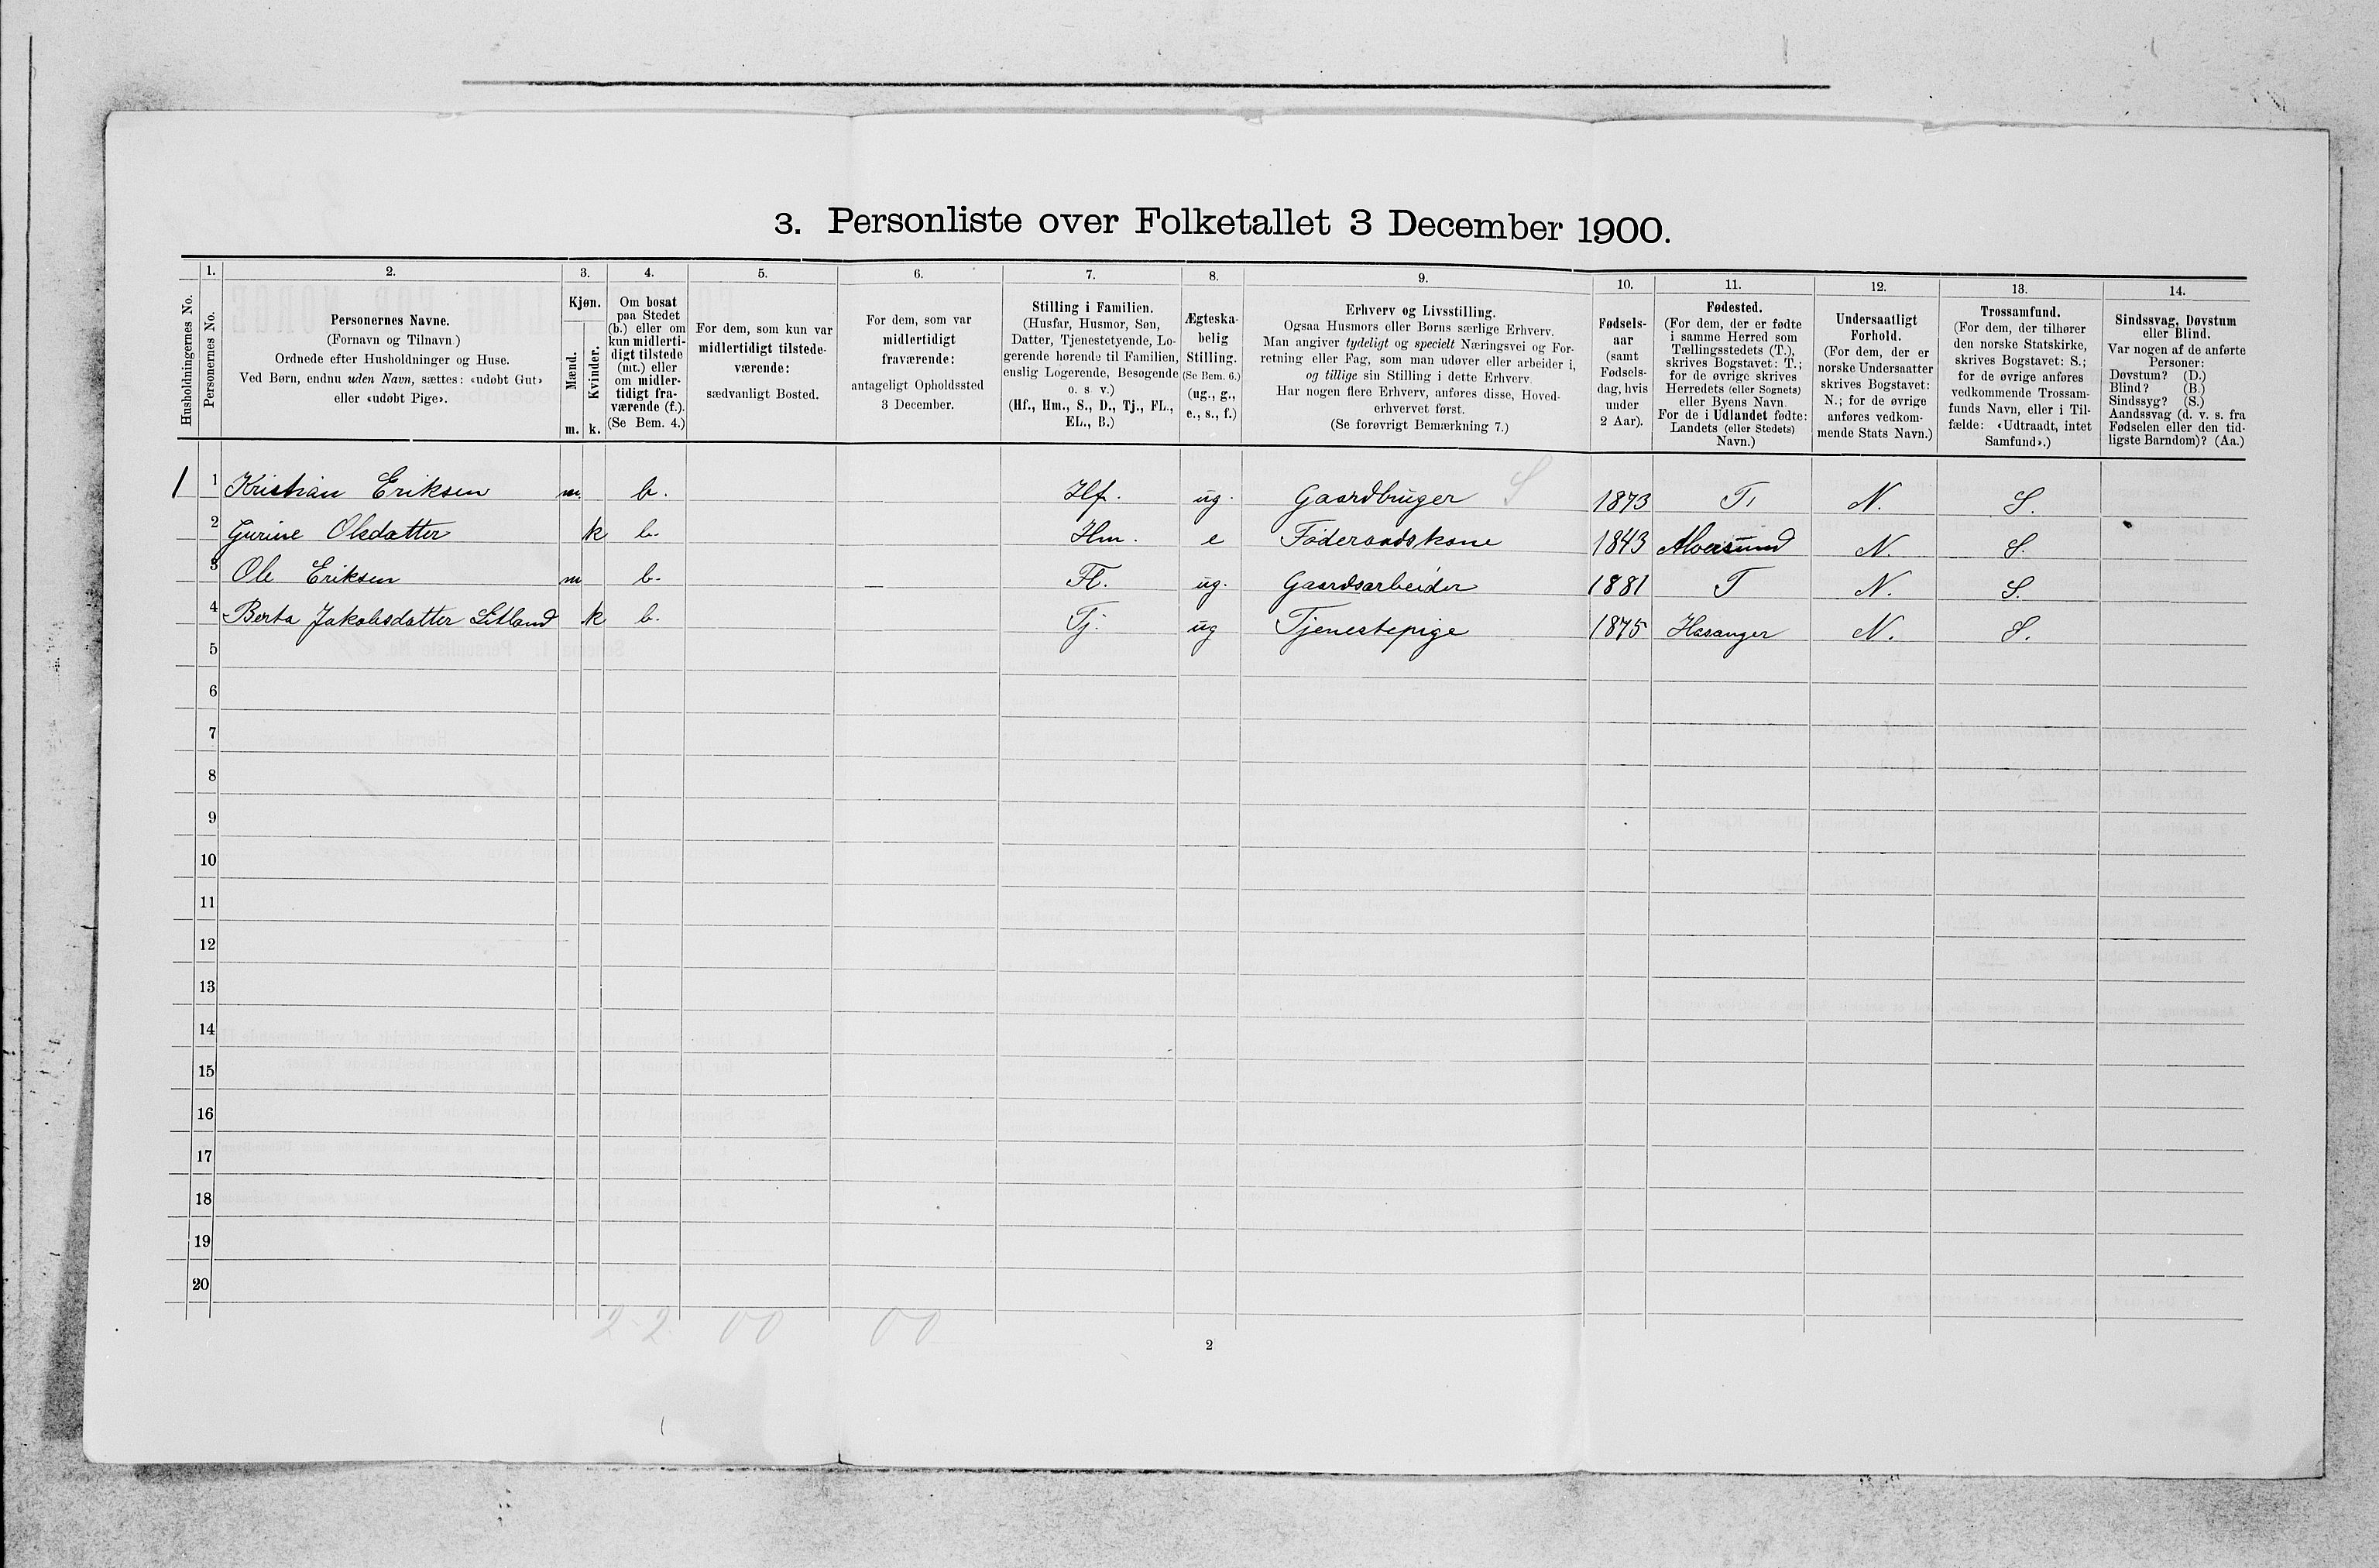 3. Personliste over Folketallet 3 December 1900.
Husholdningernes No.
1.
Personernes No.
2.
Personernes Navne.
(Fornavn og Tilnavn)
Ordnede efter Husholdninger og Huse.
Ved Børn, endnu uden Navn, sættes: «udøbt Gut»
eller «udøbt Pige».
3.
Kjøn.
Mænd.
Kvinder.
m. k.
4.
Om bosat
paa Stedet
(b.) eller om
kun midlerti-
digt tilstede
(mt.) eller
om midler-
tidigt fra-
værende (f.).
(Se Bem. 4.)
5.
For dem, som kun var
midlertidigt tilstede-
værende:
sædvanligt Bosted.
6.
For dem, som var
midlertidigt
fraværende:
antageligt Opholdssted
3 December.
7.
Stilling i Familien.
(Husfar, Husmor, Søn,
Datter, Tjenestetyende, Lo-
gerende hørende til Familien,
enslig Logerende, Besøgende
o. s v.)
(Hf., Hm., S., D., Tj., FL.,
EL., B.)
8.
Ægteska-
belig
Stilling.
(Se Bem. 6.)
(ug., g.,
e., s., f.)
9.
Erhverv og Livsstilling.
Ogsaa Husmors eller Børns særlige Erhverv.
Man angiver tydeligt og specielt Næringsvei og For-
retning eller Fag, som man udøver eller arbeider i,
og tillige sin Stilling i dette Erhverv.
Har nogen flere Erhverv, anføres disse, Hoved-
erhvervet først.
(Se forøvrigt Bemærkning 7.)
10.
Fødsels-
aar
(samt
Fødsels-
dag, hvis
under
2 Aar).
11.
Fødested.
(For dem, der er fødte
i samme Herred som
Tællingsstedets (T.),
skrives Bogstavet: T.;
for de øvrige skrives
Herredets (eller Sognets)
eller Byens Navn.
For de i Udlandet fødte:
Landets (eller Stedets)
Navn.)
12.
Undersaatligt
Forhold.
(For dem, der er
norske Undersaatter
skrives Bogstavet:
N.; for de øvrige
anføres vedkom-
mende Stats Navn.)
13.
Trossamfund.
(For dem, der tilhører
den norske Statskirke,
skrives Bogstavet: S.;
for de øvrige anføres
vedkommende Trossam-
funds Navn, eller i Til-
fælde: «Udtraadt, intet
Samfund».)
14.
Sindssvag, Døvstum
eller Blind.
Var nogen af de anførte
Personer:
Døvstum? (D.)
Blind? (B.)
Sindssyg? (S.)
Aandssvag (d. v. s. fra
Fødselen eller den tid-
ligste Barndom)? (Aa.)
1 1 Kristian Eriksen m. b. Hf. ug. Gaardbruger S 1873 T. N. S.
2 Gurine Olsdatter k b. Hm. e Føderaadskone 1843 Alversund N. S.
3 Ole Eriksen m b. Fl. ug. Gaardsarbeider 1881 T N. S.
4 Berta Jakobsdatter Litland k b. Tj. ug Tjenestepige 1875 Hasanger N. S.
5
6
7
8
9
10
11
12
13
14
15
16
17
18
19
20
2-2 00 00
2